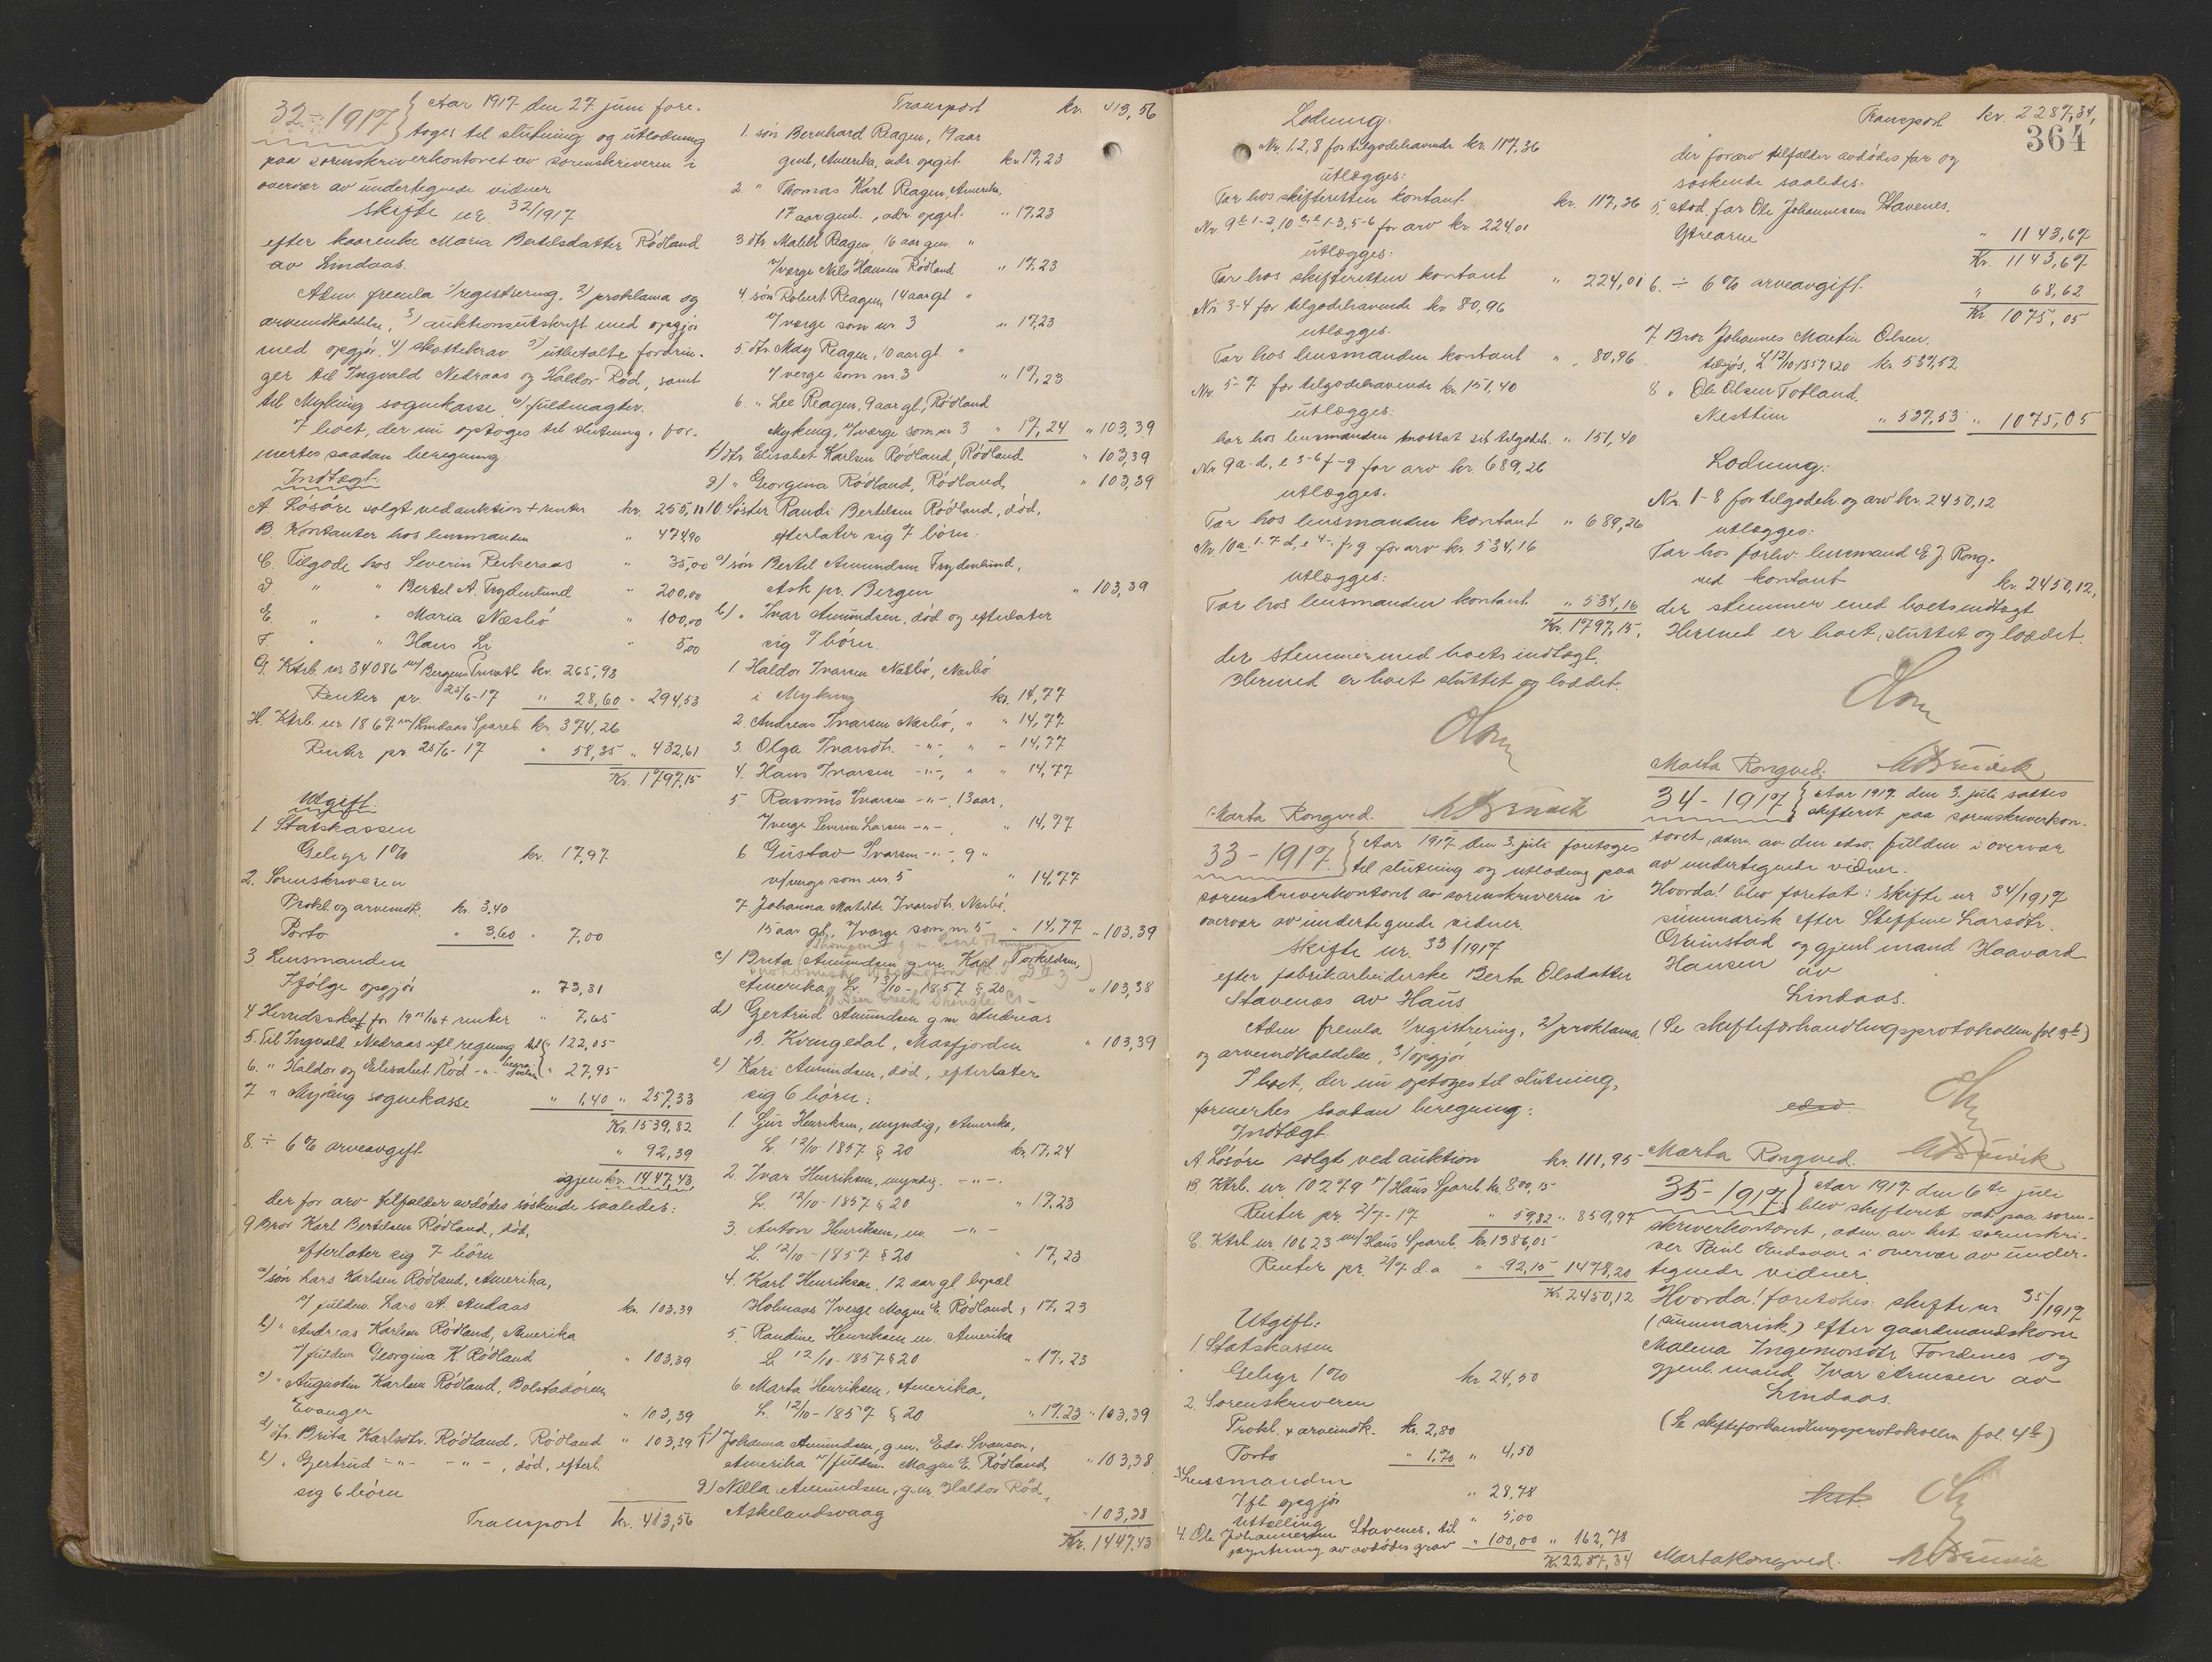 32-1917 } Aar 1917 den 27 juni fore-
toges til slutning og utlodning
paa sorenskriverkontoret av sorenskriveren i
overvær av undertegnede vidner
skifte nr. 32/1917
efter kaarenke Maria Bertelsdatter Rödland
av Lindaas.
Adm. fremla 1/registrering, 2/proklama og
arveindkaldelse, 3) auktionsutskrift med opgjör
med opgjör, 4) skattekrav, 5) utbetalte fordrin-
ger til Ingvald Nedraas og Haldor Röd, samt
til Myking sognekasse, 6) fuldmagter.
I boet, der nu optoges til slutning, for-
mertes saadan beregning:
Indtægt:
A. Lösöre solgt ved auktion + renter kr. 255,11
B. Kontanter hos lensmanden " 474,90
C. Tilgode hos Severin Rerkeraas " 35,00
D. " " Bertel A. Frydenlund " 200,00
E. " " Maria Næsbö " 100,00
F. " " Hans Li " 5,00
G. Ktrb. nr 34086 m/Bergens Privatb. kr. 265,93
Renter pr. 25/6-17 " 28,60 " 294,53
H. Ktrb. nr. 1867 m/Lindaas Spareb. kr. 374,26
Renter pr. 25/6-17 " 58,35 " 432,61
Kr. 1797,15
Utgift:
1 Statskassen
Gebyr 1% kr. 17,97
2. Sorenskriveren
Prokl. og arveindk. kr. 3,40
Porto " 3,60 " 7,00
3 Lensmanden
Ifölge opgjör " 73,31
4 Herredsskat for 1915/16 + renter " 7,65
5. Til Ingvald Nedraas ifl. regning til " 122,05
6. " Haldor og Elisabet Röd -"- begravelsen " 27,95
7 " Myking sognekasse " 1,40 " 257,33
Kr. 1539,82
8. ÷ 6% arveavgift " 92,39
igjen kr. 1447,43
der for arv tilfalder avdödes söskende saaledes:
9 Bror Karl Bertelsen Rödland, död,
efterlater sig 7 börn
a) sön Lars Karlsen Rödland, Amerika,
v/ fuldm. Lars A. Andaas kr. 103,39
b) " Andreas Karlsen Rödland, Amerika
v/fuldm Georgina K. Rödland " 103,39
c) " Augustin Karlsen Rödland, Bolstadören
Evanger " 103,39
d) dtr. Brita Karlsdtr. Rödland, Rödland " 103,39
e) " Gertrud -"- -"-, död, efterl.
sig 6 börn
Transport kr. 413,56
Transport kr. 413,56
1. sön Bernhard Reagen, 19 aar
gml., Amerika, adr. opgit kr. 17,23
2 " Thomas Karl Reagen, Amerika,
17 aar gml., adr. opgit. " 17,23
3 dtr. Matild Reagen, 16 aar gm. "
v/verge Nils Hansen Rödland " 17,23
4. sön Robert Reagen, 14 aar gl. "
v/verge som nr. 3 " 17,23
5 dtr. May Reagen, 10 aar gl. "
v/verge som nr 3 " 17,23
6. " Lee Reagen, 9 aar gl., Rödland
Myking, v/verge som nr 3 " 17,24 " 103,39
f) dtr. Elisabet Karlsen Rödland, Rödland " 103,39
g) " Georgina Rödland, Rödland, " 103,39
10. Söster Randi Bertelsen Rödland, död,
efterlater sig 7 börn:
a) sön Bertel Amundsen Frydenlund,
Ask pr. Bergen " 103,39
b) " Ivar Amundsen, död og efterlater
sig 7 börn.
1. Haldor Ivarsen Næsbö, Næsbö
i Myking kr. 14,77
2. Andreas Ivarsen Næsbö, " " 14,77
3. Olga Ivarsdtr. -"-, " " 14,77
4. Hans Ivarsen -"-, " " 14,77
5. Rasmus Ivarsen -"-, 13 aar,
v/verge Severin Larsen -"-. " 14,77
6 Gustav Ivarsen -"-, 9 "
v/verge som nr. 5 " 14,77
7. Johanna Matilde Ivarsdtr. Næsbö,
15 aar gl., v/verge som nr 5 " 14,77 " 103,39
c) Brita Amundsen g.m. Karl Torkeldsen,
Amerika L. 12/10-1857 § 20 " 103,38
d) Gertrud Amundsen gm Andreas
B. Kvingedal, Masfjorden " 103,39
e) Kari Amundsen, död, efterlater
sig 6 börn:
1. Sjur Henriksen, myndig, Amerika,
L. 12/10 1857 § 20 kr. 17,24
2. Ivar Henriksen, myndig. -"-.
L. 12/10-1857 § 20 " 17,23
3. Anton Henriksen, m. -"-
L. 12/10-1857 § 20 " 17,23
4. Karl Henriksen, 12 aar gl bopæl
Holmaas v/verge Magne E. Rödland, 17,23
5. Randine Henriksen m. Amerika
L. 12/10-1857 § 20 " 17,23
6. Marta Henriksen, Amerika,
L. 12/10-1857 § 20 " 17,23 " 103,39
f) Johanna Amundsen, g.m. Edv. Svanson,
Amerika v/fuldm. Magne E. Rödland " 103,38
g) Nilla Amundsen, g.m. Haldor Röd,
Askelandsvaag " 103,38
Kr. 1447,43
Lodning:
Nr. 1, 2, 8 for tilgodehavende kr. 117,36
utlægges:
Tar hos skifteretten kontant kr. 117,36
Nr. 9e 1-2, 10 e 1-3, 5-6 for arv kr. 224,01
utlægges:
Tar hos skifteretten kontant " 224,01
Nr 3-4 for tilgodehavende kr 80,96
utlægges.
Tar hos lensmanden kontant " 80,96
Nr. 5-7 for tilgodehavende kr. 151,40
utlægges:
har hos lensmanden mottat sit tilgodeh. " 151,40
Nr. 9a-d, e 3-6 f-g for arv kr. 689,26
utlægges.
Tar hos lensmanden kontant " 689,26
Nr. 10a. 1-7 d, e 4-, f, g for arv kr. 534,16
utlægges:
Tar hos lensmanden kontant " 534,16
Kr. 1797,15,
der stemmer med boets indtægt.
Hermed er boet sluttet og loddet.
Marta Rongved.
33-1917. } Aar 1917 den 3. juli foretoges
til slutning og utlodning paa
sorenskriverkontoret av sorenskriveren i
overvær av undertegnede vidner.
skifte nr. 33/1917
efter fabrikarbeiderske Berta Olsdatter
Stavenes av Haus
Adm fremla 1/registrering, 2/proklama
og arveindkaldelse, 3/opgjör
I boet, der nu optoges til slutning,
formertes saadan beregning:
Indtægt.
A Lösöre solgt ved auktion kr. 111,95
B. Ktrb. nr 10279 m/Haus Spareb. kr. 800,15
Renter pr. 2/7-17 " 59,82 " 859,97
C. Ktrb. nr. 10623 m/Haus Spareb. kr. 1386,05
Renter pr. 2/7 d.a " 92,15 " 1478,20
Kr. 2450,12
Utgift:
1. Statskassen
Gebyr 1% kr. 24,50
2. Sorenskriveren
Prokl. + arveindk. kr. 2,80
Porto " 1,70 " 4,50
3. Lensmanden
Ifl. opgjör " 28,78
Uttælling " 5,00
4. Ole Johannesen Stavenes, til
pyntning av avdödes grav " 100,00 " 162,78
Kr. 2287,34
Transport kr. 2287,34,
364
der for arv tilfalder avdödes far og
söskende saaledes.
5. Avd. far Ole Johannessen Stavenes,
Ytrearne " 1143,67
Kr. 1143,67
6. ÷ 6% arveavgift. " 68,62
Kr. 1075,05
7. Bror Johannes Martin Olsen,
tilsjös, L 12/10 1857 § 20 kr. 537,52
8 " Ole Olsen Totland,
Nesttun " 537,53 " 1075,05
Lodning:
Nr. 1-8 for tilgodeh. og arv kr. 2450,12
utlægges:
Tar hos forhv. lensmand E. J. Rong-
ved kontant kr. 2450,12,
der stemmer med boets indtægt
Hermed er boet sluttet og loddet.
Marta Rongved.
34-1917 } Aar 1917 den 3. juli sattes
skifteret paa sorenskriverkon-
toret, adm. av den edsv. fuldm i overvær
av undertegnede vidner.
Hvorda! blev foretat: skifte nr 34/1917
summarisk efter Steffine Larsdtr.
Grimstad og gjenl. mand Haavard
Hansen av
Lindaas.
(Se skifteforhandlingsprotokollen fol 3b)
edsv.
Marta Rongved.
35-1917 } Aar 1917 den 6te juli
blev skifteret sat paa soren-
skriverkontoret, adm. av kst sorenskri-
ver Paul Gudsaar i overvær av under-
tegnede vidner.
Hvorda! foretokes: skifte nr 35/1917
(summarisk) efter gaardmandskone
Malena Ingemorsdtr Fondenes og
gjenl. mand Ivar Arnesen av
Lindaas.
(Se skifteforhandlingsprotokollen fol. 4b)
kst.
Marta Rongved.